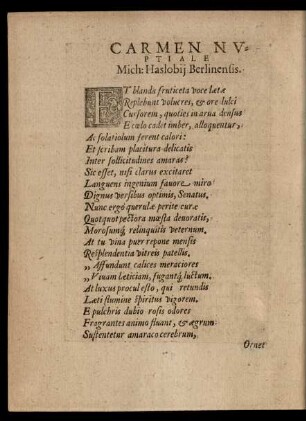 CARMEN NV-
PTIALE
Mich: Haslobij Berlinensis.
ET blanda fruticeta voce lætæ
Replebunt volucres, & ore dulci
Cursorem, quoties in arua densus
E cœlo cadet imber, alloquentur,
Ac solatiolum ferent calori:
Et scribam placitura delicatis
Inter sollicitudines amaras?
Sic esset, nisi clarus excitaret
Languens ingenium fauore miro
Dignus versibus optimis, Senatus.
Nunc ergò querulæ perite curæ
Quotquot pectora mœsta deuoratis,
Morosumq́ relinquitis veternum.
At tu vina puer repone mensis
Resplendentia vitreis patellis,
„ Affundunt calices meraciores
„ Viuam lætitiam, fugantq́ luctum.
At luxus procul esto, qui retundis
Læti flumine spiritus vigorem.
E pulchris dubio rosis odores
Fragrantes animo fluant, & ægrum
Sustentetur amaraco cerebrum,
Ornet